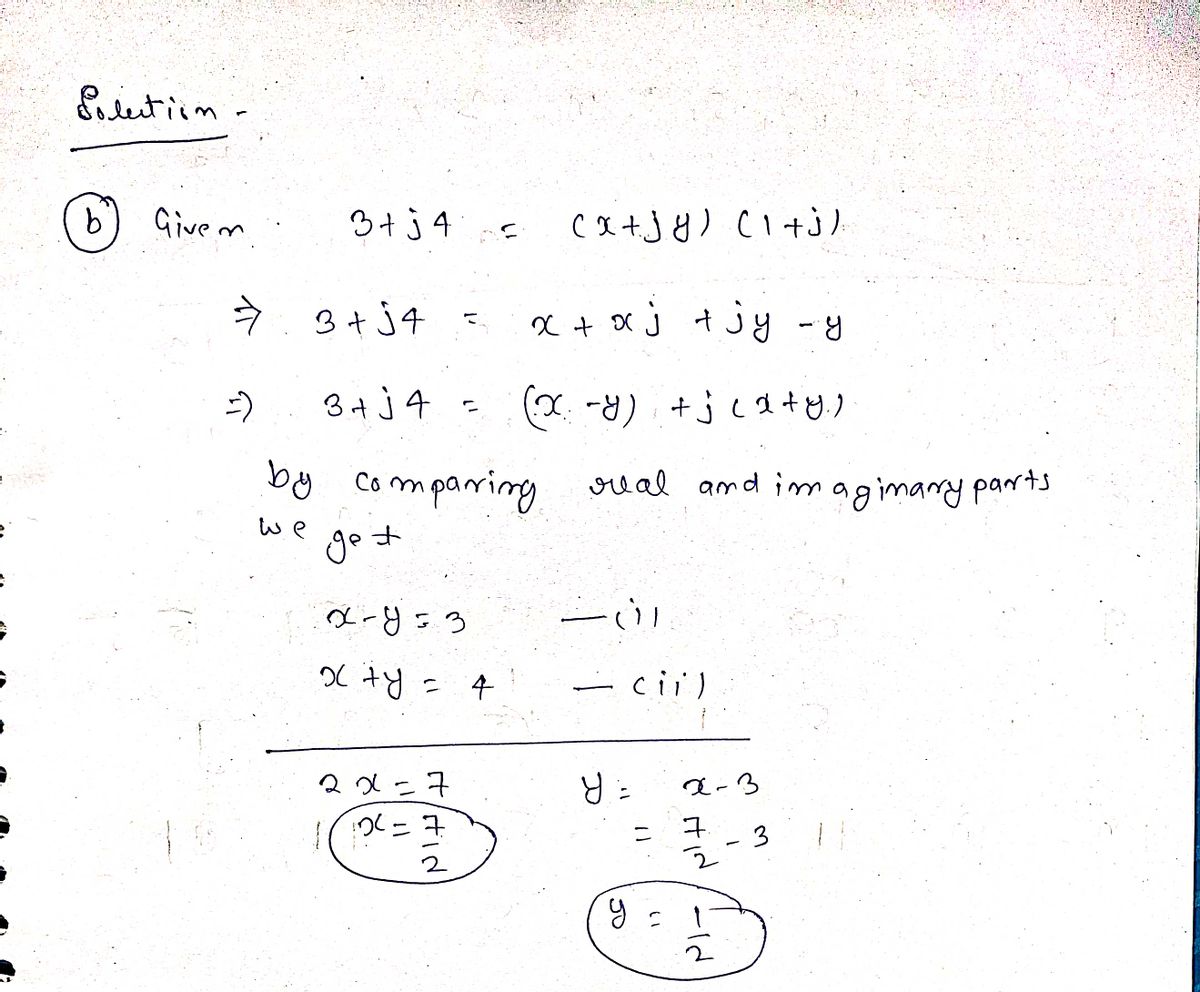 Solution -
(b) Given 3+j4 = (x+jy) (1+j)
⇒ 3+j4 = x + xj + jy - y
⇒ 3+j4 = (x-y) + j(x+y)
by comparing real and imaginary parts
we get
x-y = 3 —(i)
x+y = 4 —(ii)
2x = 7 y = x-3
x = 7/2 = 7/2 - 3
y = 1/2